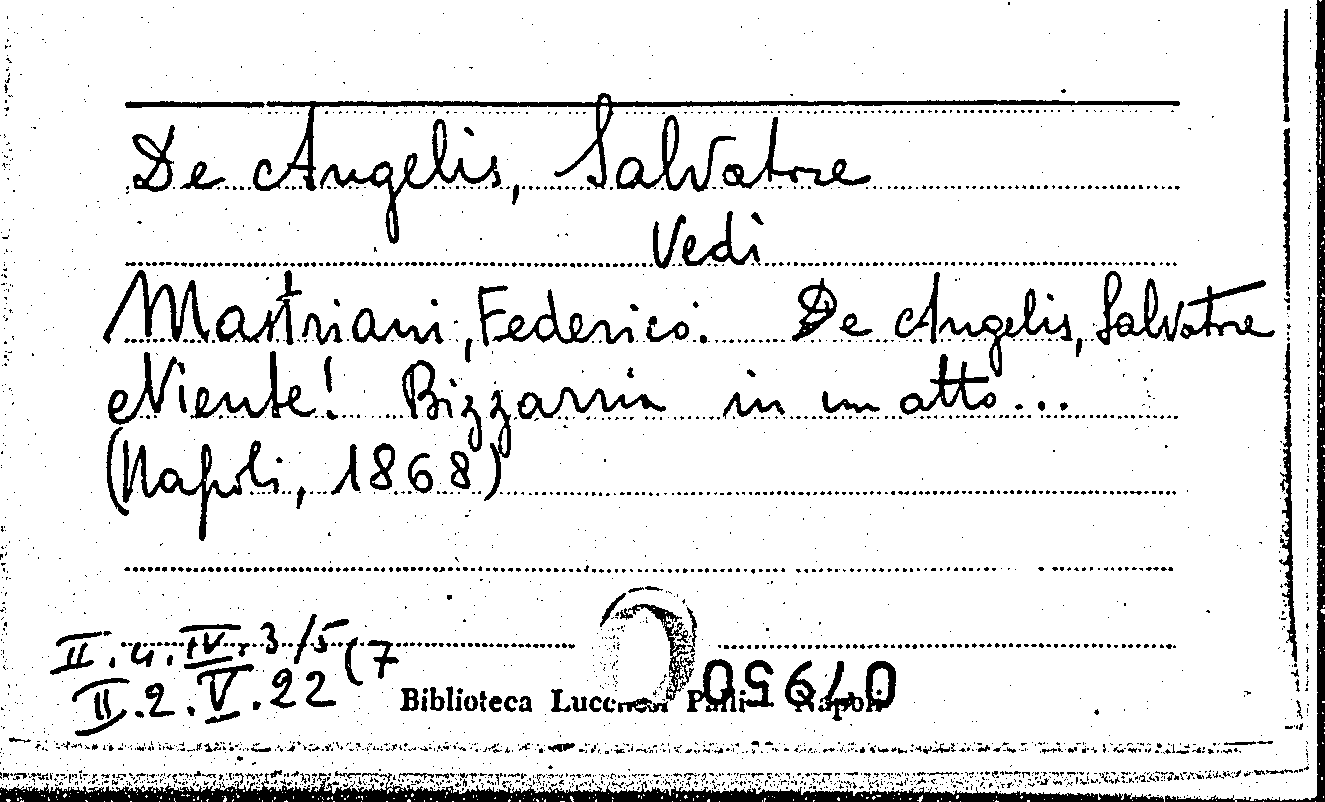 De Angelis, Salvatore
Vedi
Mastriani, Federico. De Angelis, Salvatore
Niente! Bizzarria in un atto...
(Napoli, 1868)
II.4.IV.3/5
II.2.V.22(7
Biblioteca Lucchesi Palli Napoli